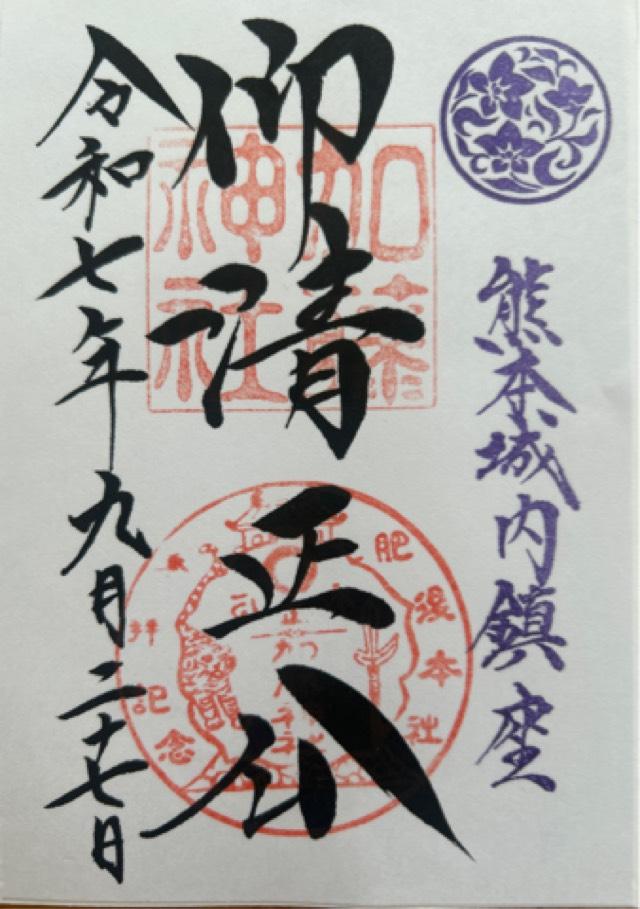 熊本城内鎮座
仰清正公
加藤
神社
肥後本社
参拝記念
令和七年九月二十七日